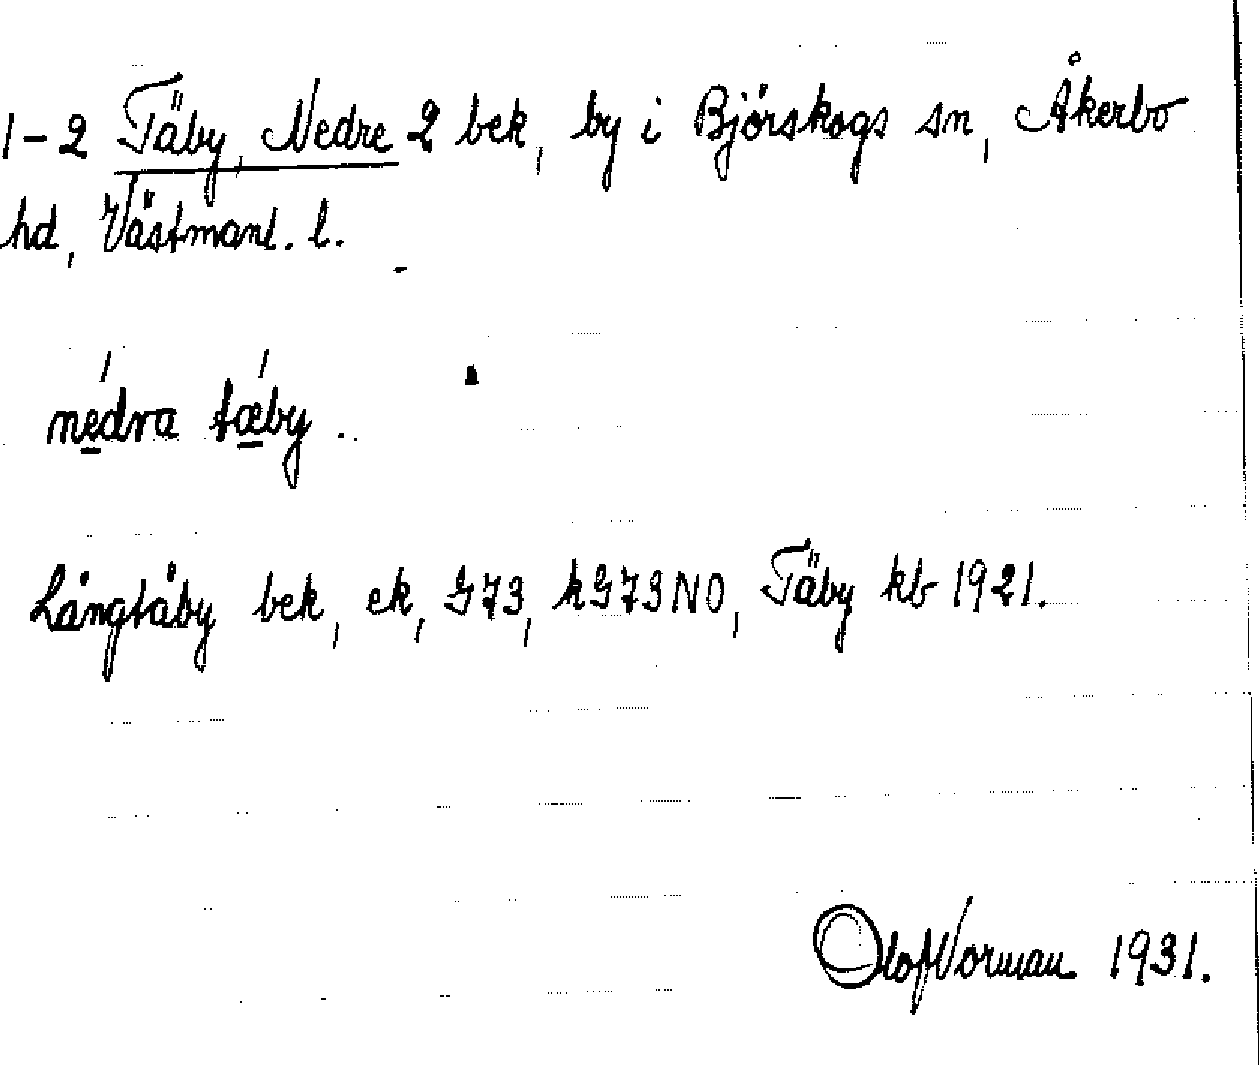 1-2 Täby, Nedre 2 bek, by i Björskogs sn, Åkerbo
hd, Västmanl. l.
nédra tǽby.
Långtåby bek, ek, G73, kG73NO, Täby kb 1921.
Olof Norman 1931.